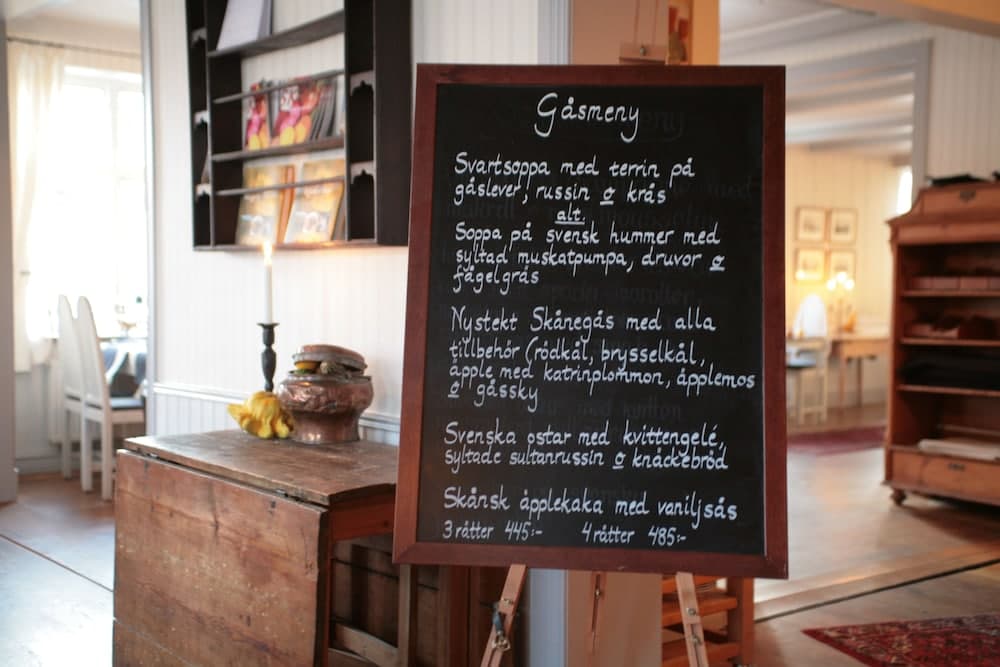 Gåsmeny
Svartsoppa med terrin på
gåslever, russin o krås
alt.
Soppa på svensk hummer med
syltad muskatpumpa, druvor o
fågelgräs
Nystekt Skånegås med alla
tillbehör (rödkål, brysselkål,
äpple med katrinplommon, äpplemos
o gåssky
Svenska ostar med kvittengelé,
syltade sultanrussin o knäckebröd
Skånsk äpplekaka med vaniljsås
3 rätter 445:- 4 rätter 485:-